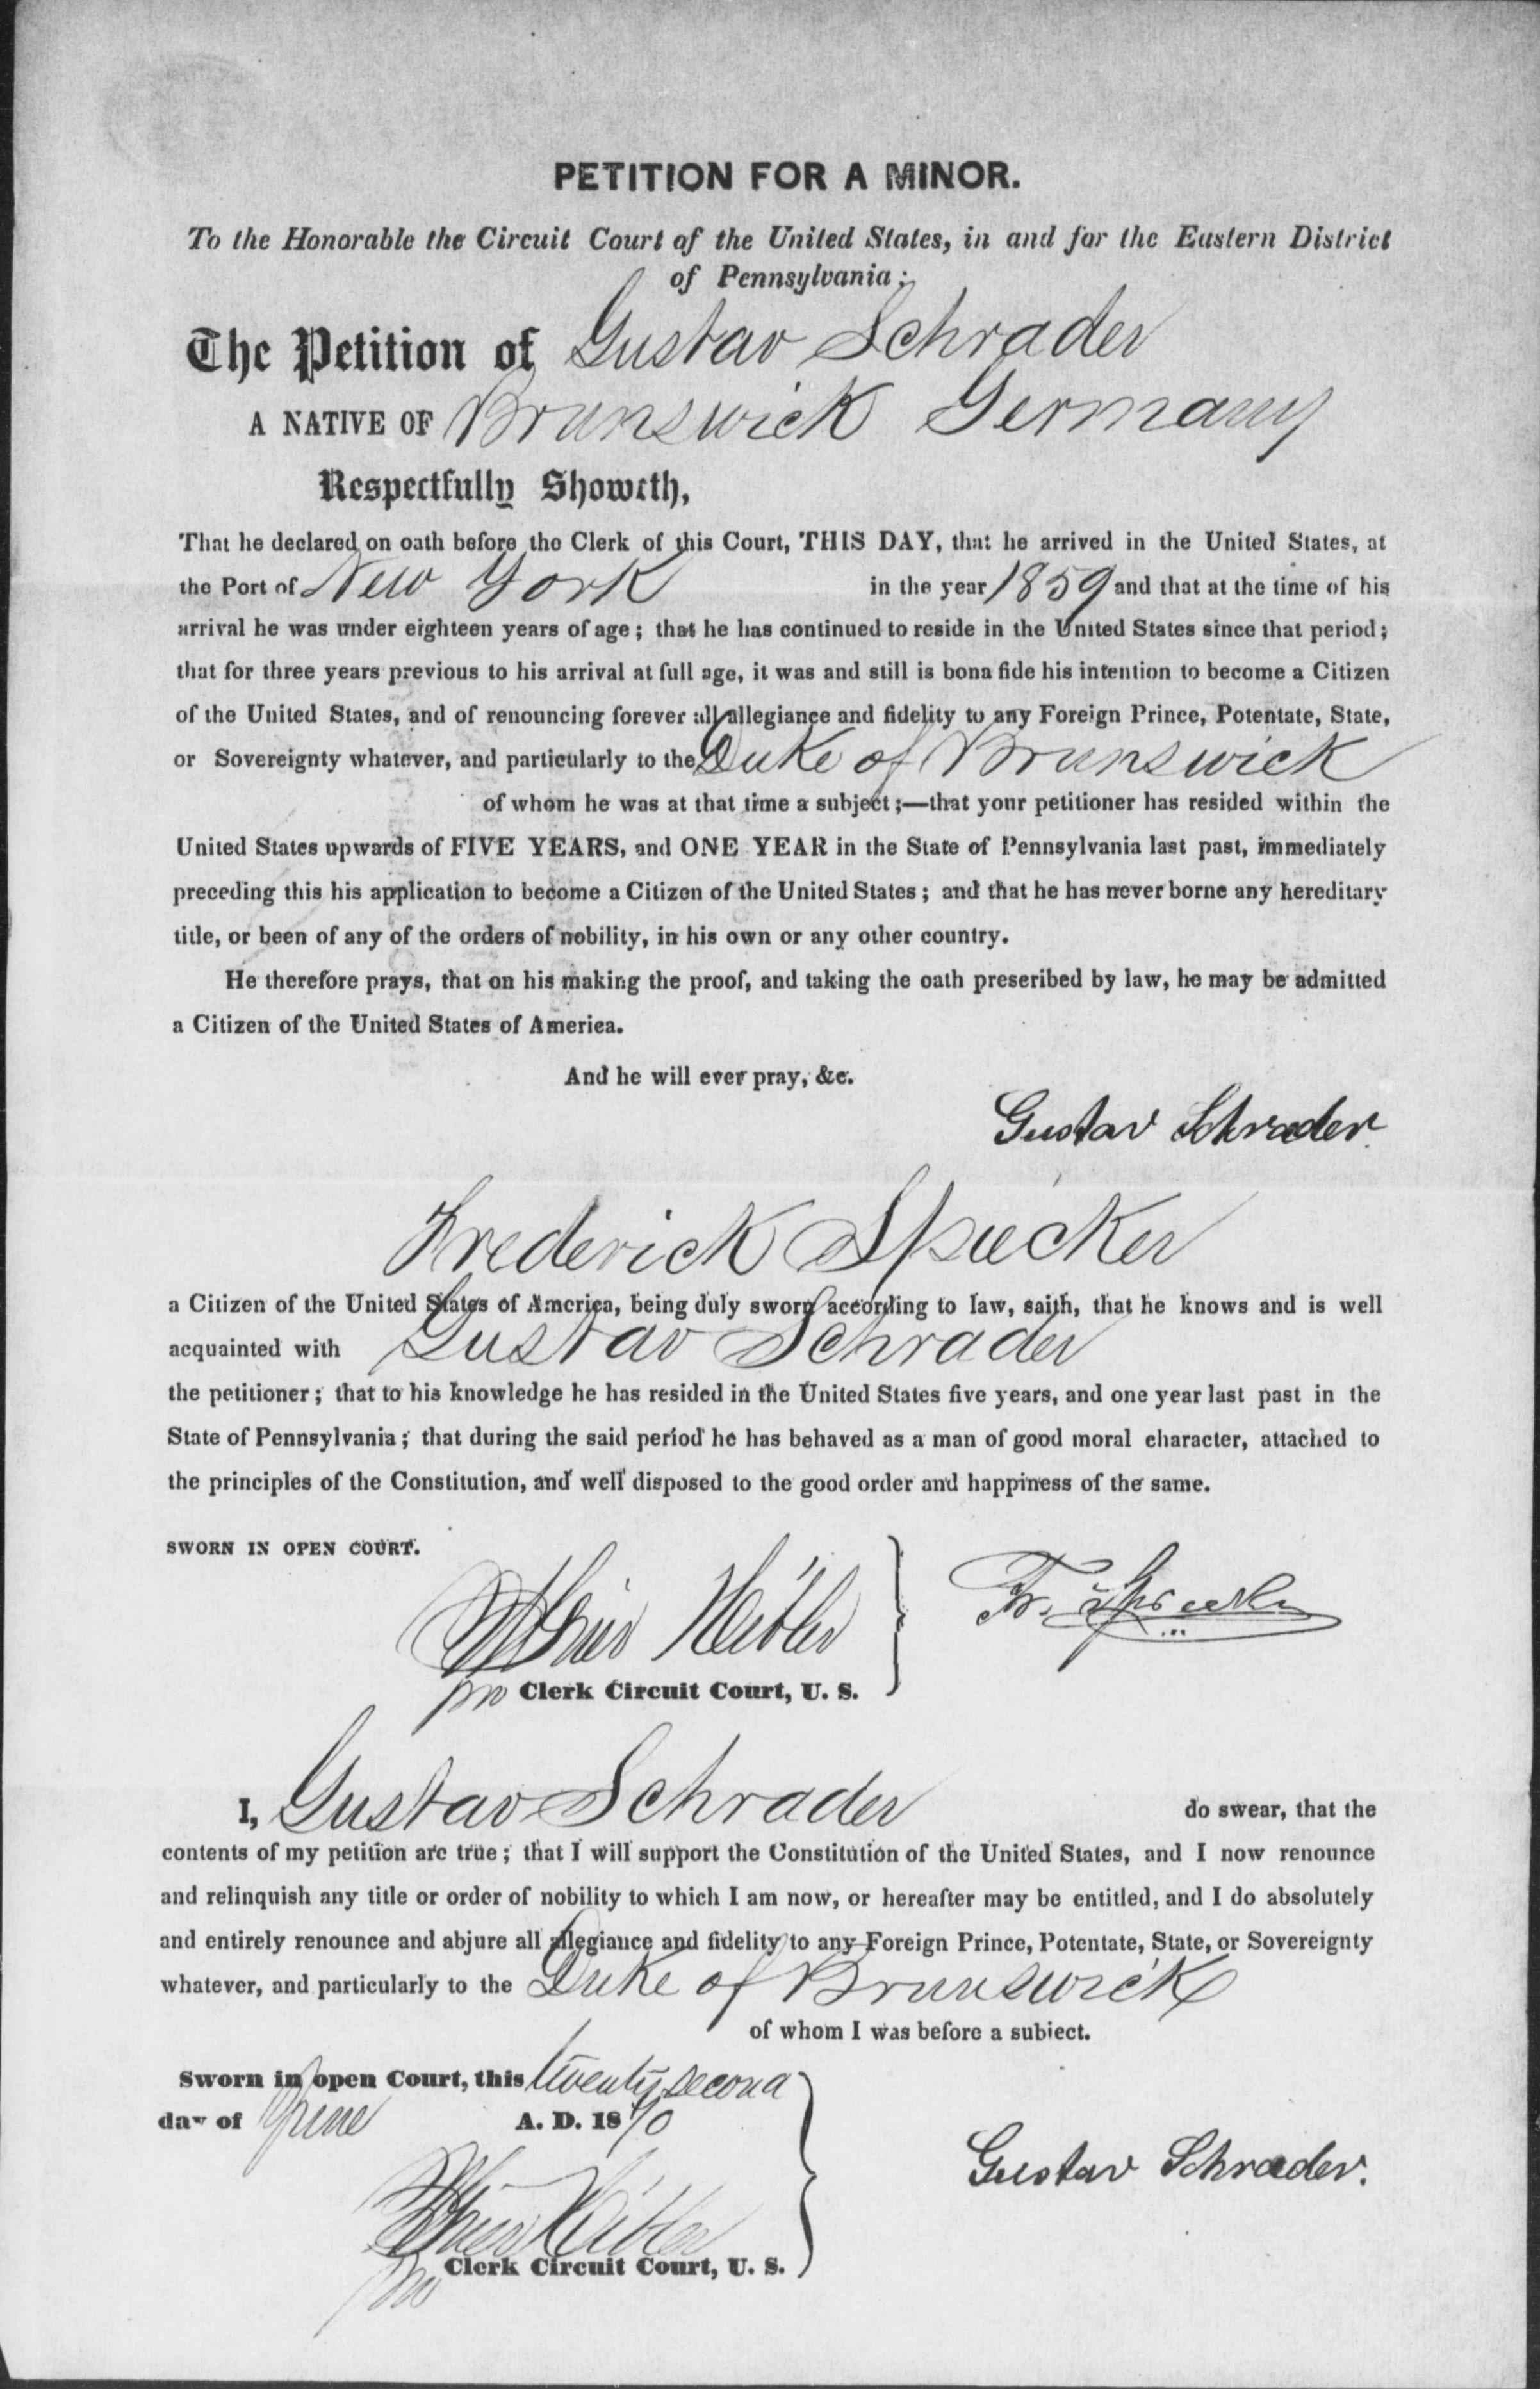 PETITION FOR A MINOR.
To the Honorable the Circuit Court of the United States, in and for the Eastern District
of Pennsylvania:
The Petition of Gustav Schrader
A NATIVE OF Brunswick Germany
Respectfully Showeth,
That he declared on oath before the Clerk of this Court, THIS DAY, that he arrived in the United States, at
the Port of New York in the year 1859 and that at the time of his
arrival he was under eighteen years of age; that he has continued to reside in the United States since that period;
that for three years previous to his arrival at full age, it was and still is bona fide his intention to become a Citizen
of the United States, and of renouncing forever all allegiance and fidelity to any Foreign Prince, Potentate, State,
or Sovereignty whatever, and particularly to the Duke of Brunswick
of whom he was at that time a subject;—that your petitioner has resided within the
United States upwards of FIVE YEARS, and ONE YEAR in the State of Pennsylvania last past, immediately
preceding this his application to become a Citizen of the United States; and that he has never borne any hereditary
title, or been of any of the orders of nobility, in his own or any other country.
He therefore prays, that on his making the proof, and taking the oath preseribed by law, he may be admitted
a Citizen of the United States of America.
And he will ever pray, &c.
Gustav Schrader.
Frederick Spiecker
a Citizen of the United States of America, being duly sworn according to law, saith, that he knows and is well
acquainted with Gustav Schrader
the petitioner; that to his knowledge he has resided in the United States five years, and one year last past in the
State of Pennsylvania; that during the said period he has behaved as a man of good moral character, attached to
the principles of the Constitution, and well disposed to the good order and happiness of the same.
SWORN IN OPEN COURT.
Heibler Fr. Spiecker
pro Clerk Circuit Court, U. S.
I, Gustav Schrader do swear, that the
contents of my petition are true; that I will support the Constitution of the United States, and I now renounce
and relinquish any title or order of nobility to which I am now, or hereafter may be entitled, and I do absolutely
and entirely renounce and abjure all allegiance and fidelity to any Foreign Prince, Potentate, State, or Sovereignty
whatever, and particularly to the Duke of Brunswick
of whom I was before a subject.
Sworn in open Court, this twenty second
day of June A. D. 1870
Gustav Schrader.
pro Clerk Circuit Court, U. S.